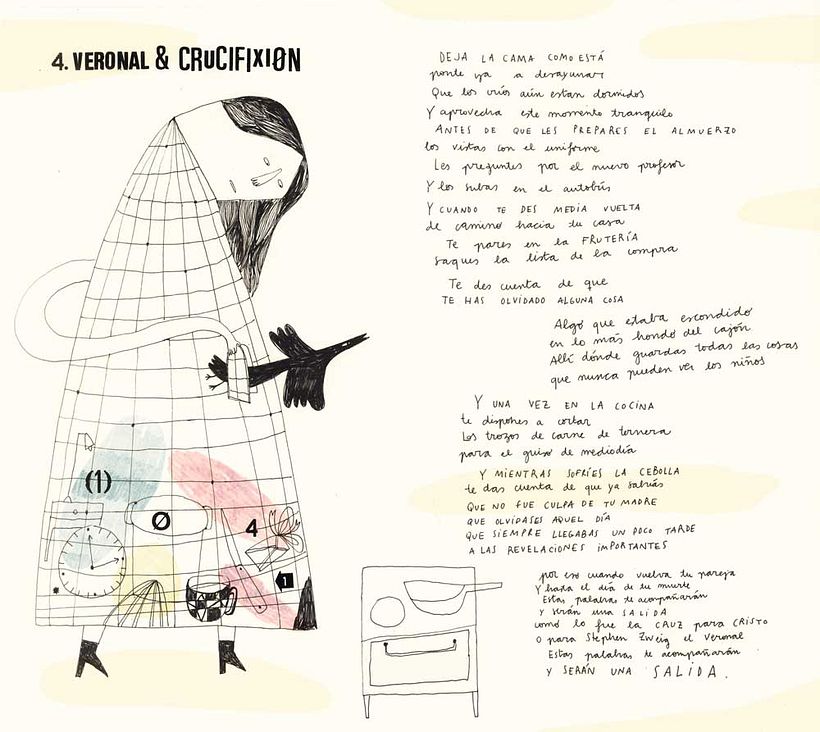 4. VERONAL & CRUCIFIXIØN
DEJA LA CAMA COMO ESTÁ
ponte ya a desayunar
Que los críos aún estan dormidos
Y aprovecha este momento tranquilo
ANTES DE QUE LES PREPARES EL ALMUERZO
los vistas con el uniforme
Les preguntes por el nuevo profesor
Y los subas en el autobús
Y CUANDO TE DES MEDIA VUELTA
de camino hacia tu casa
Te pares en la FRUTERÍA
saques la lista de la compra
Te des cuenta de que
TE HAS OLVIDADO ALGUNA COSA
Algo que estaba escondido
en lo más hondo del cajón
Allí dónde guardas todas las cosas
que nunca pueden ver los niños
Y UNA VEZ EN LA COCINA
te dispones a cortar
Los trozos de carne de ternera
para el guiso de mediodía
Y MIENTRAS SOFRÍES LA CEBOLLA
te das cuenta de que ya sabías
QUE NO FUE CULPA DE TU MADRE
QUE OLVIDASES AQUEL DÍA
QUE SIEMPRE LLEGABAS UN POCO TARDE
A LAS REVELACIONES IMPORTANTES
por eso cuando vuelva tu pareja
Y hasta el día de tu muerte
Estas palabras te acompañarán
Y SERÁN UNA SALIDA
como lo fue la CRUZ para CRISTO
O para Stephen Zweig el Veronal
Estas palabras te acompañarán
Y SERÁN UNA SALIDA.
(1)
Ø
4
1